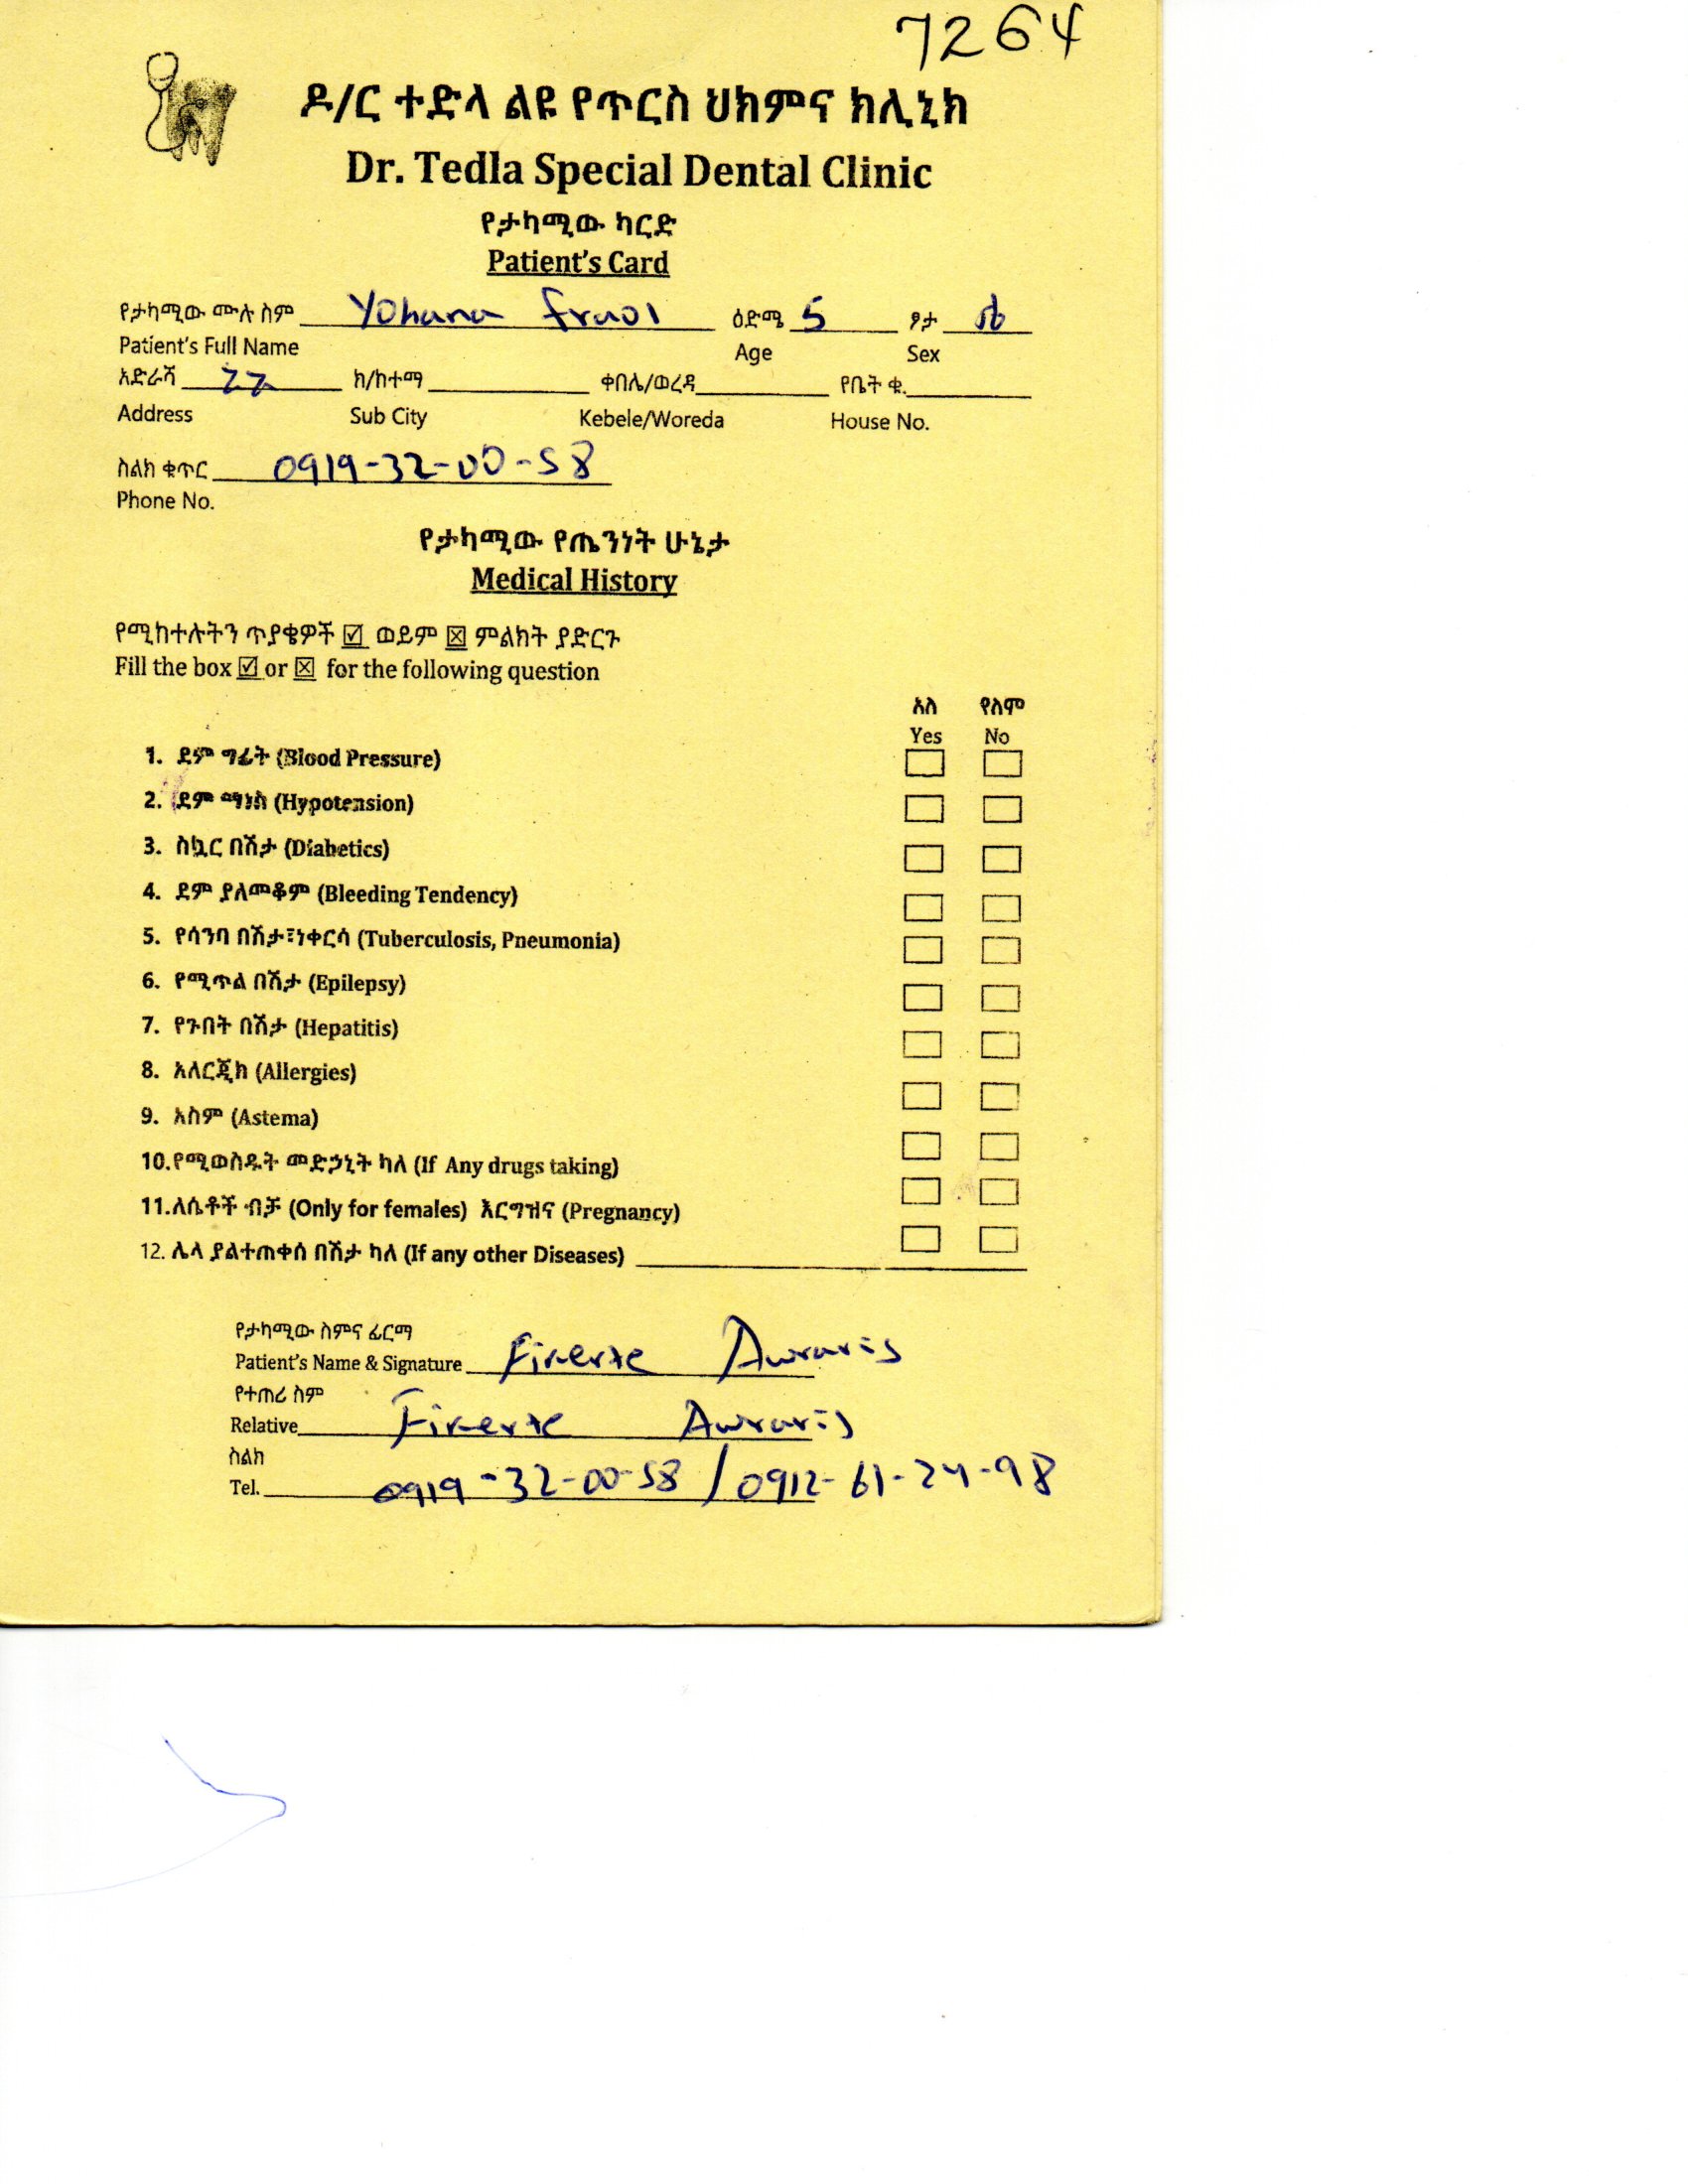 7264
ዶ/ር ተድላ ልዩ የጥርስ ህክምና ክሊኒክ
Dr. Tedla Special Dental Clinic
የታካሚው ካርድ
Patient's Card
የታካሚው ሙሉ ስም Yohana Fraol ዕድሜ 5 ፆታ ሴ
Patient's Full Name Age Sex
አድራሻ 22 ክ/ከተማ ቀበሌ/ወረዳ የቤት ቁ.
Address Sub City Kebele/Woreda House No.
ስልክ ቁጥር 0919-32-00-58
Phone No.
የታካሚው የጤንነት ሁኔታ
Medical History
የሚከተሉትን ጥያቄዎች ☑ ወይም ☒ ምልክት ያድርጉ
Fill the box ☑ or ☒ for the following question
አለ የለም
Yes No
1. ደም ግፊት (Blood Pressure)
2. ደም ማነስ (Hypotension)
3. ስኳር በሽታ (Diabetics)
4. ደም ያለመቆም (Bleeding Tendency)
5. የሳንባ በሽታ፣ነቀርሳ (Tuberculosis, Pneumonia)
6. የሚጥል በሽታ (Epilepsy)
7. የጉበት በሽታ (Hepatitis)
8. አለርጂክ (Allergies)
9. አስም (Astema)
10.የሚወስዱት መድኃኒት ካለ (If Any drugs taking)
11.ለሴቶች ብቻ (Only for females) እርግዝና (Pregnancy)
12. ሌላ ያልተጠቀሰ በሽታ ካለ (If any other Diseases)
የታካሚው ስምና ፊርማ
Patient's Name & Signature
የተጠሪ ስም
Relative
ስልክ
Tel. 0919-32-00-58 / 0912-61-24-98